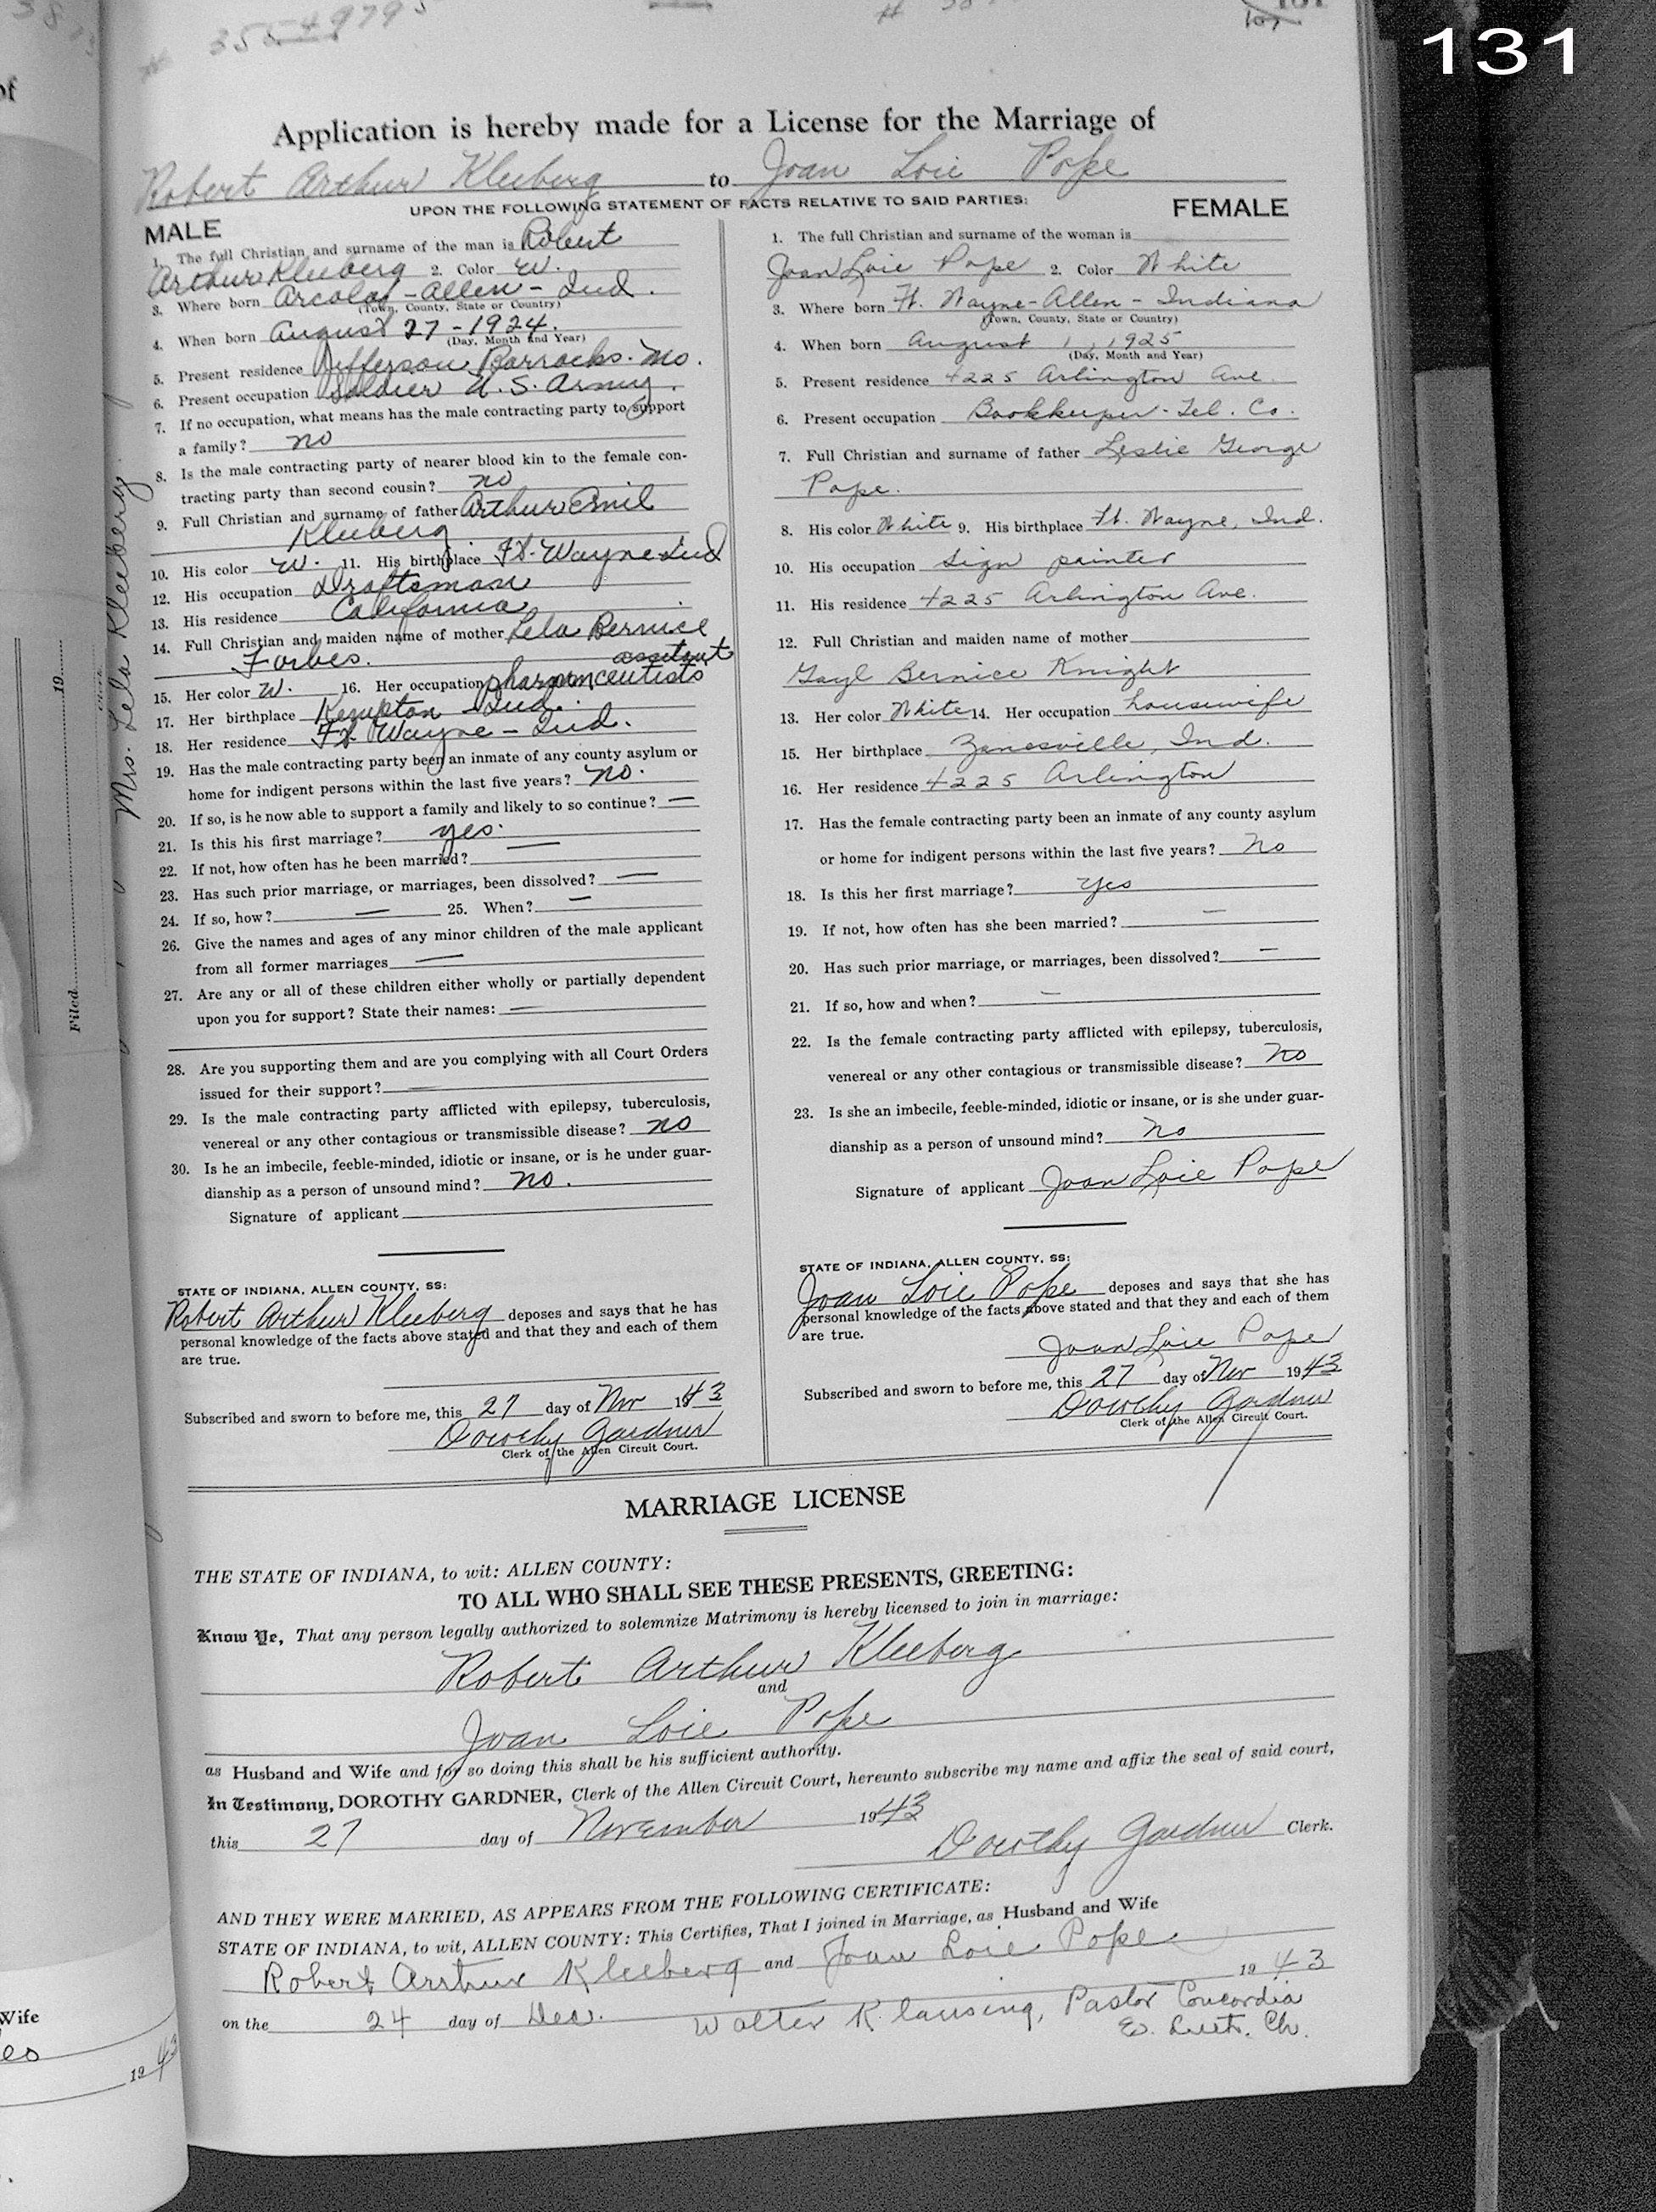 355-4979
131
Application is hereby made for a License for the Marriage of
Robert Arthur Kleeberg to Joan Loie Pope
UPON THE FOLLOWING STATEMENT OF FACTS RELATIVE TO SAID PARTIES:
MALE
1. The full Christian and surname of the man is Robert
Arthur Kleeberg 2. Color W.
3. Where born Arcola - Allen - Ind.
(Town, County, State or Country)
4. When born August 27 - 1924.
(Day, Month and Year)
5. Present residence Jefferson Barracks. Mo.
6. Present occupation Soldier U.S. Army.
7. If no occupation, what means has the male contracting party to support
a family? no
8. Is the male contracting party of nearer blood kin to the female con-
tracting party than second cousin? no
9. Full Christian and surname of father Arthur Emil
Kleeberg
10. His color W. 11. His birthplace Ft. Wayne Ind
12. His occupation Draftsman
13. His residence California
14. Full Christian and maiden name of mother Lela Bernice
Forbes.
15. Her color W. 16. Her occupation
17. Her birthplace Kempton Ind.
18. Her residence Ft Wayne - Ind.
19. Has the male contracting party been an inmate of any county asylum or
home for indigent persons within the last five years? no.
20. If so, is he now able to support a family and likely to so continue? —
21. Is this his first marriage? yes.
22. If not, how often has he been married? —
23. Has such prior marriage, or marriages, been dissolved? —
24. If so, how? — 25. When? —
26. Give the names and ages of any minor children of the male applicant
from all former marriages —
27. Are any or all of these children either wholly or partially dependent
upon you for support? State their names: —
28. Are you supporting them and are you complying with all Court Orders
issued for their support? —
29. Is the male contracting party afflicted with epilepsy, tuberculosis,
venereal or any other contagious or transmissible disease? no
30. Is he an imbecile, feeble-minded, idiotic or insane, or is he under guar-
dianship as a person of unsound mind? no.
Signature of applicant
STATE OF INDIANA, ALLEN COUNTY, SS:
Robert Arthur Kleeberg deposes and says that he has
personal knowledge of the facts above stated and that they and each of them
are true.
Subscribed and sworn to before me, this 27 day of Nov 1943
Dorothy Gardner
Clerk of the Allen Circuit Court.
FEMALE
1. The full Christian and surname of the woman is
Joan Loie Pope 2. Color White
3. Where born Ft. Wayne - Allen - Indiana
(Town, County, State or Country)
4. When born August 1, 1925
(Day, Month and Year)
5. Present residence 4225 Arlington Ave.
6. Present occupation Bookkeeper - Tel. Co.
7. Full Christian and surname of father Leslie George
Pope.
8. His color White 9. His birthplace Ft. Wayne, Ind.
10. His occupation Sign painter
11. His residence 4225 Arlington Ave.
12. Full Christian and maiden name of mother
Gayl Bernice Knight
13. Her color White 14. Her occupation housewife
15. Her birthplace Zanesville, Ind.
16. Her residence 4225 Arlington
17. Has the female contracting party been an inmate of any county asylum
or home for indigent persons within the last five years? No
18. Is this her first marriage? Yes
19. If not, how often has she been married? —
20. Has such prior marriage, or marriages, been dissolved? —
21. If so, how and when? —
22. Is the female contracting party afflicted with epilepsy, tuberculosis,
venereal or any other contagious or transmissible disease? No
23. Is she an imbecile, feeble-minded, idiotic or insane, or is she under guar-
dianship as a person of unsound mind? No
Signature of applicant Joan Loie Pope
STATE OF INDIANA, ALLEN COUNTY, SS:
Joan Loie Pope deposes and says that she has
personal knowledge of the facts above stated and that they and each of them
are true.
Joan Loie Pope
Subscribed and sworn to before me, this 27 day of Nov 1943
Dorothy Gardner
Clerk of the Allen Circuit Court.
MARRIAGE LICENSE
THE STATE OF INDIANA, to wit: ALLEN COUNTY:
TO ALL WHO SHALL SEE THESE PRESENTS, GREETING:
Know Ye, That any person legally authorized to solemnize Matrimony is hereby licensed to join in marriage:
Robert Arthur Kleeberg
and
Joan Loie Pope
as Husband and Wife and for so doing this shall be his sufficient authority.
In Testimony, DOROTHY GARDNER, Clerk of the Allen Circuit Court, hereunto subscribe my name and affix the seal of said court,
this 27 day of November 1943
Dorothy Gardner Clerk.
AND THEY WERE MARRIED, AS APPEARS FROM THE FOLLOWING CERTIFICATE:
STATE OF INDIANA, to wit, ALLEN COUNTY: This Certifies, That I joined in Marriage, as Husband and Wife
Robert Arthur Kleeberg and Joan Loie Pope
on the 24 day of Dec. 1943
Walter Klausing, Pastor Concordia
Ev. Luth. Ch.
Mrs. Lela Kleeberg
Filed 19
Wife
1943